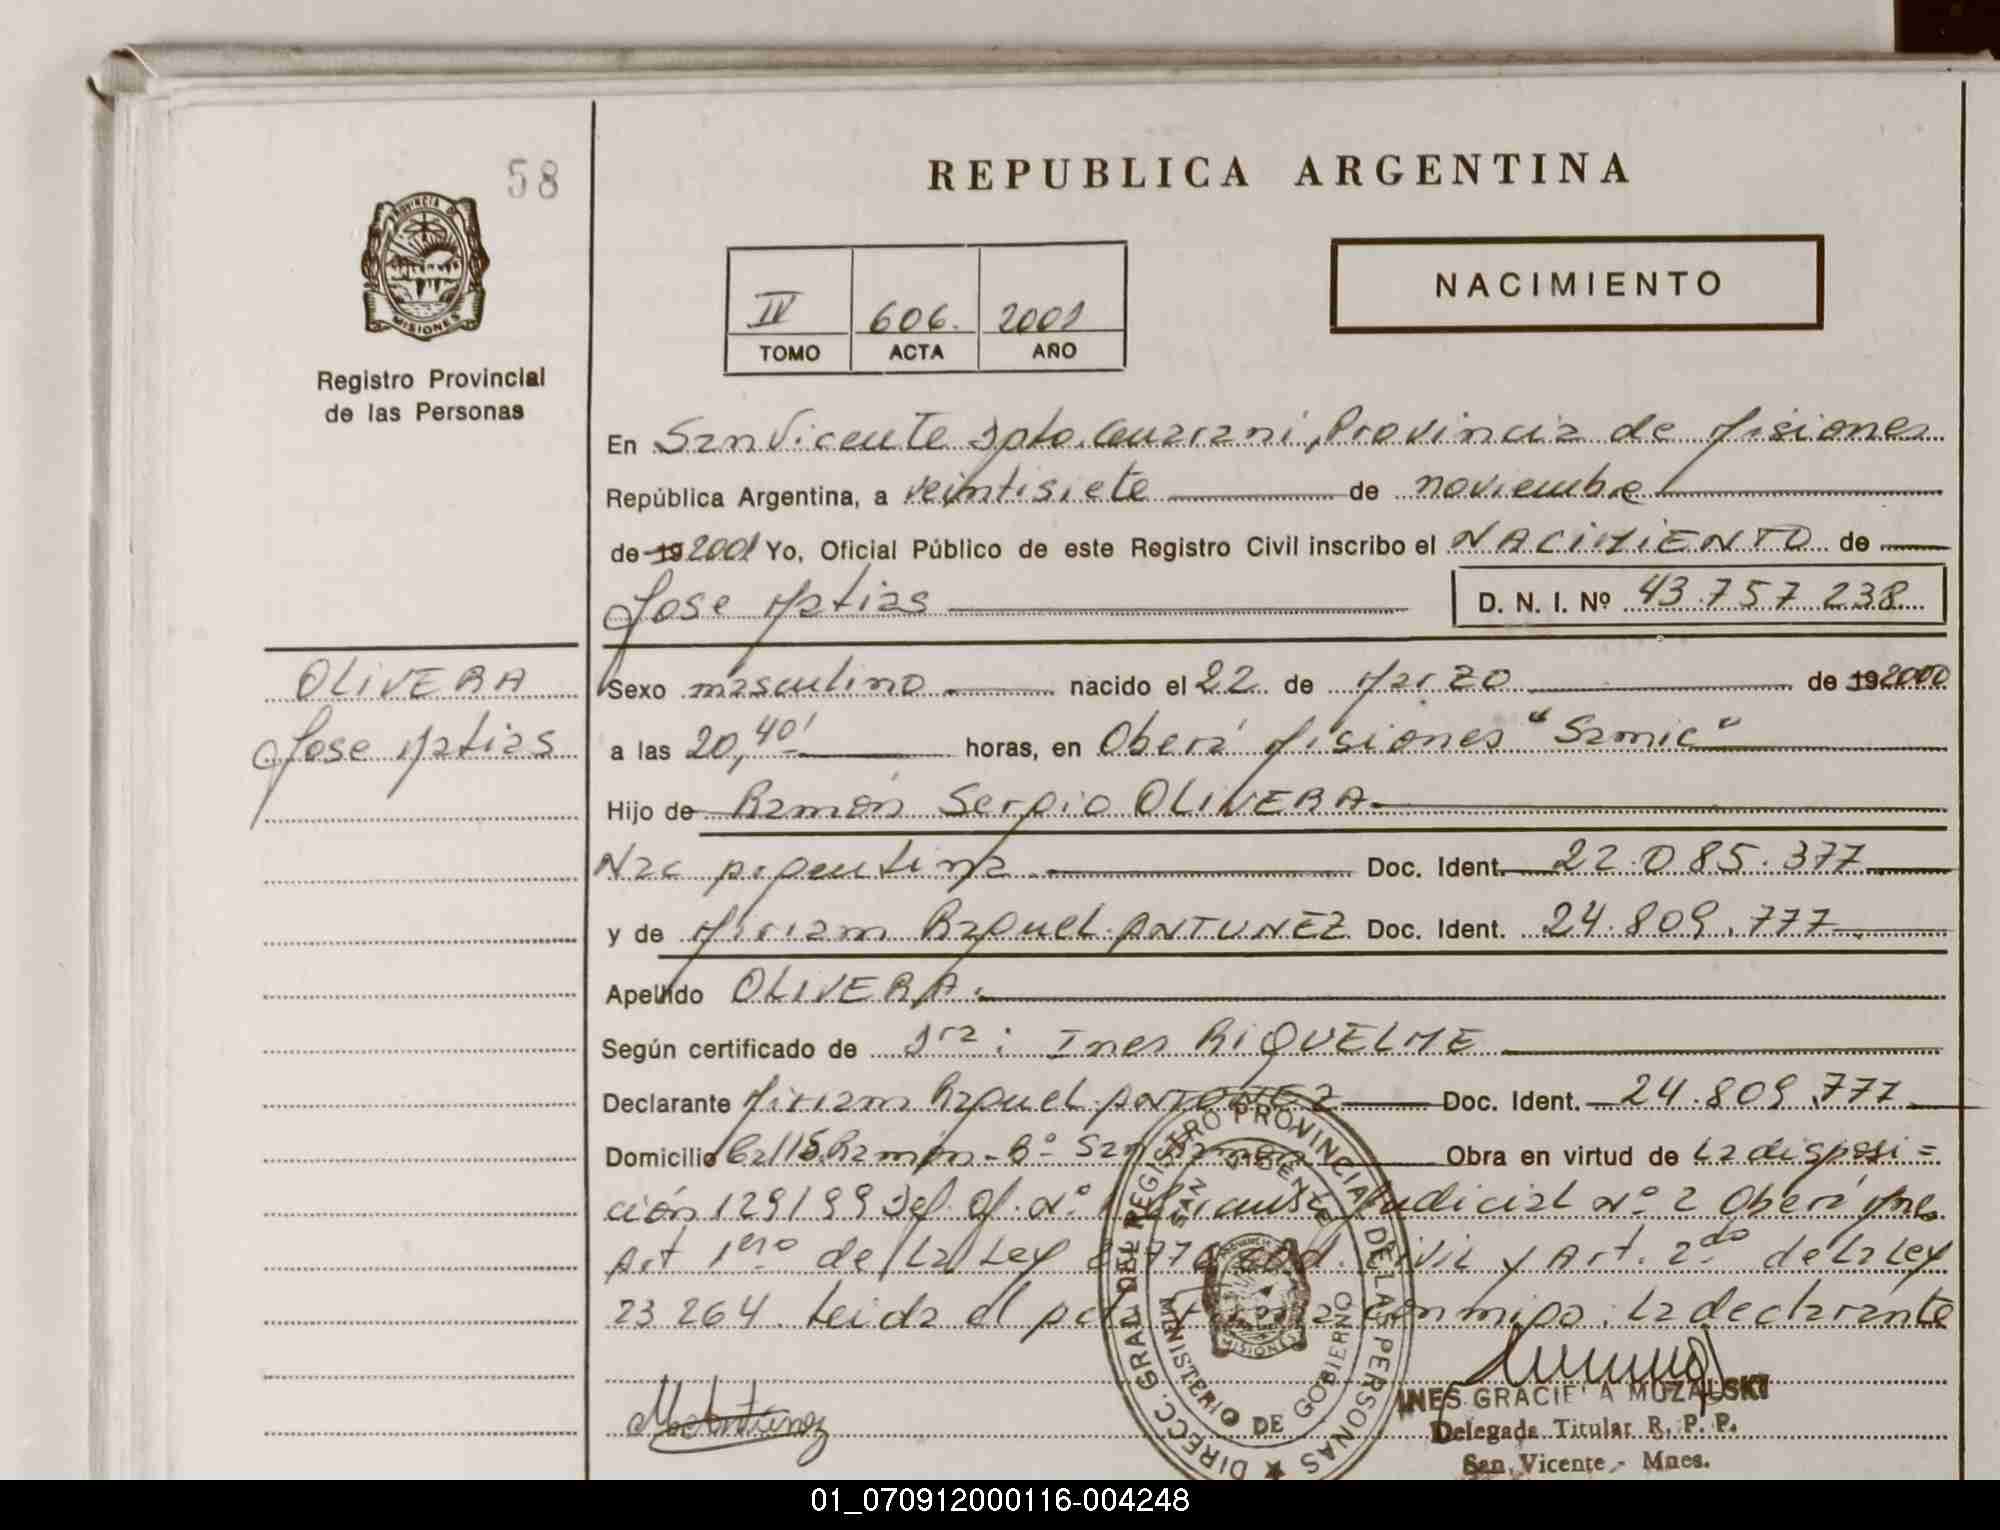 58
PROVINCIA DE
MISIONES
Registro Provincial
de las Personas
REPUBLICA ARGENTINA
IV 606. 2001
TOMO ACTA AÑO
NACIMIENTO
En San Vicente Dpto. Guarani, Provincia de Misiones
República Argentina, a veintisiete de noviembre
de 19 2001 Yo, Oficial Público de este Registro Civil inscribo el NACIMIENTO de
Jose Matias D. N. I. Nº 43.757.238
OLIVERA
Jose Matias
Sexo masculino nacido el 22 de Marzo de 19 2000
a las 20,40' horas, en Oberá Misiones "Samic"
Hijo de Ramón Sergio OLIVERA
Nac Argentina Doc. Ident. 22.085.377
y de Miriam Raquel ANTUNEZ Doc. Ident. 24.809.777
Apellido OLIVERA.
Según certificado de Dra: Ines RIQUELME
Declarante Miriam Raquel ANTUNEZ Doc. Ident. 24.809.777
Domicilio Ramón - Bº San Ramón Obra en virtud de la disposi=
ción 129/99 Def. Of. Nº Judicial Nº 2 Oberá Mnes.
Art 1ero de la Ley Civil y Art. 2do de la Ley
23.264. Leida el acta conmigo. La declarante
DIRECC. GRAL. DEL REGISTRO PROVINCIAL DE LAS PERSONAS
SAN VICENTE
MINISTERIO DE GOBIERNO
MISIONES
MAntúnez
INES GRACIELA MUZALSKI
Delegada Titular R. P. P.
San Vicente - Mnes.
01_070912000116-004248